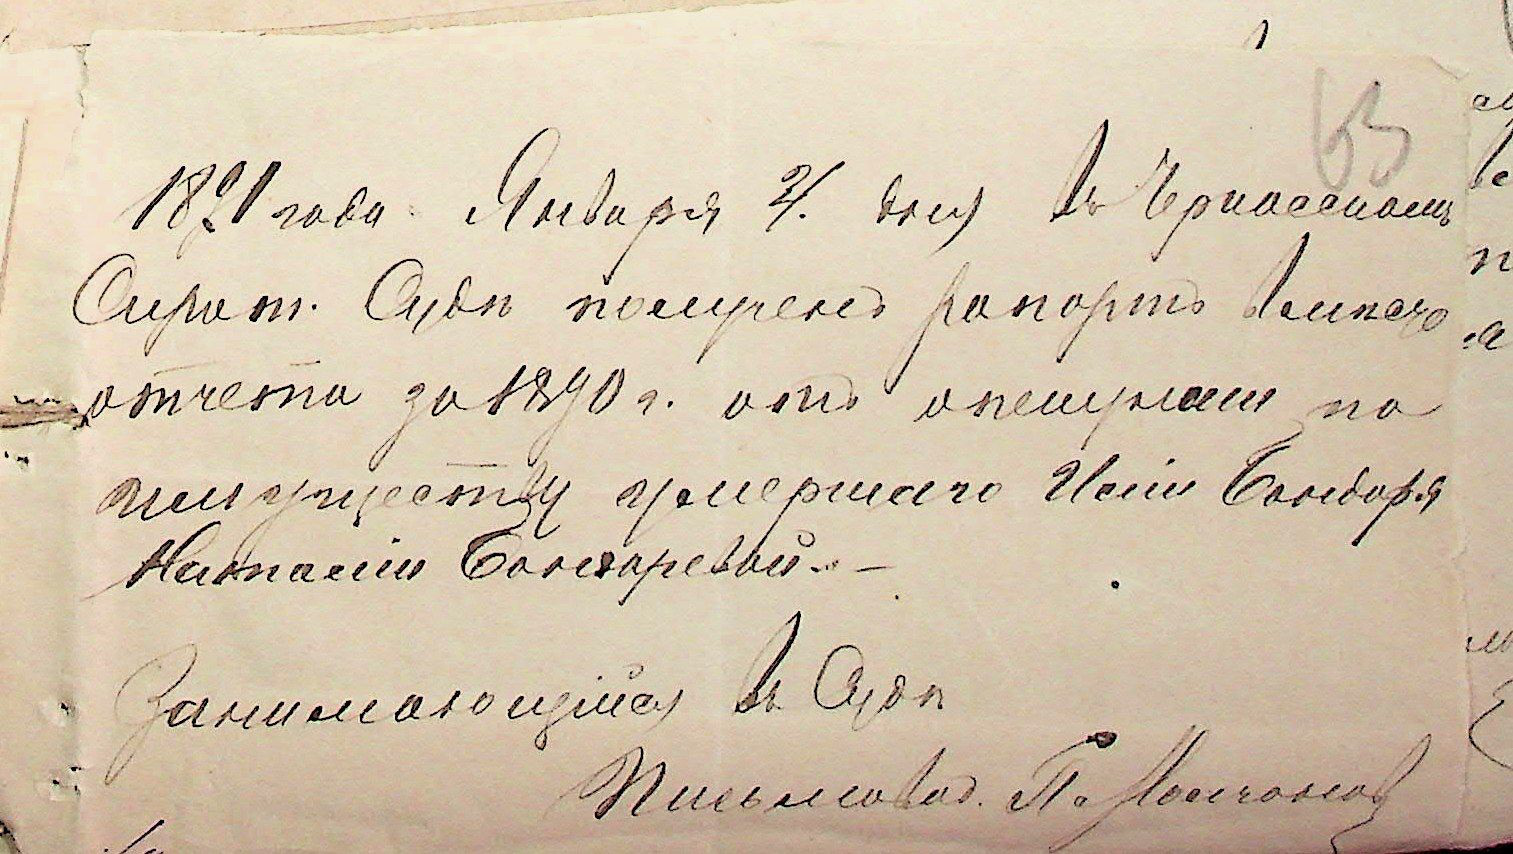 63
1891 года Января 21. дня въ Черкасскомъ
Сирот. Судѣ полученъ рапортъ вмѣсто
отчета за 1890 г. отъ опекунши по
имуществу умершаго Иліи Бондаря
Наталіи Бондаревой. –
Занимающійся въ Судѣ
Письмовод. П. Молчанов